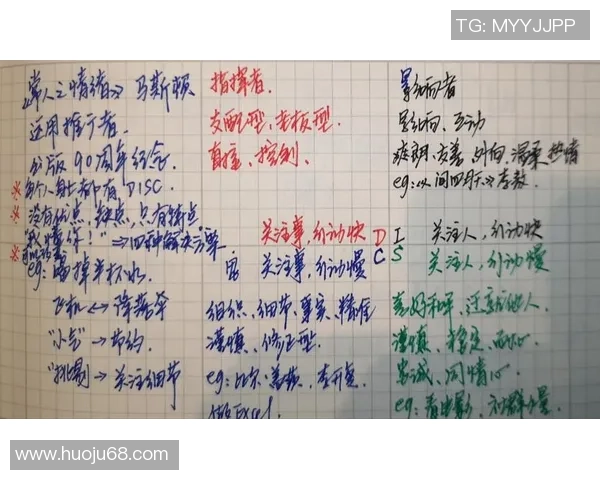 TG: MYYJJPP
《常人之情绪》马斯顿
运用推广者.
出版90周年纪念.
※每个人身上都有DISC.
※没有优点、缺点,只有特点
"我懂你!"→四种解决方案
eg: 喝掉半杯水.
飞机↔降落伞
"小气"→节约.
"挑剔"→关注细节
指挥者.
支配型,老板型.
直接、控制.
关注事,行动快 D
关注事,行动慢 C
组织、细节、事实、精准
谨慎、修正型.
eg:比尔·盖茨,李开复.
做Excel.
影响者
影响、互动
爽朗、友善、外向、温柔、热情
I 关注人,行动快
S 关注人,行动慢
喜好和平、
谨慎、稳定、耐心.
忠诚、同情心.
eg:看电影,
www.huoju68.com